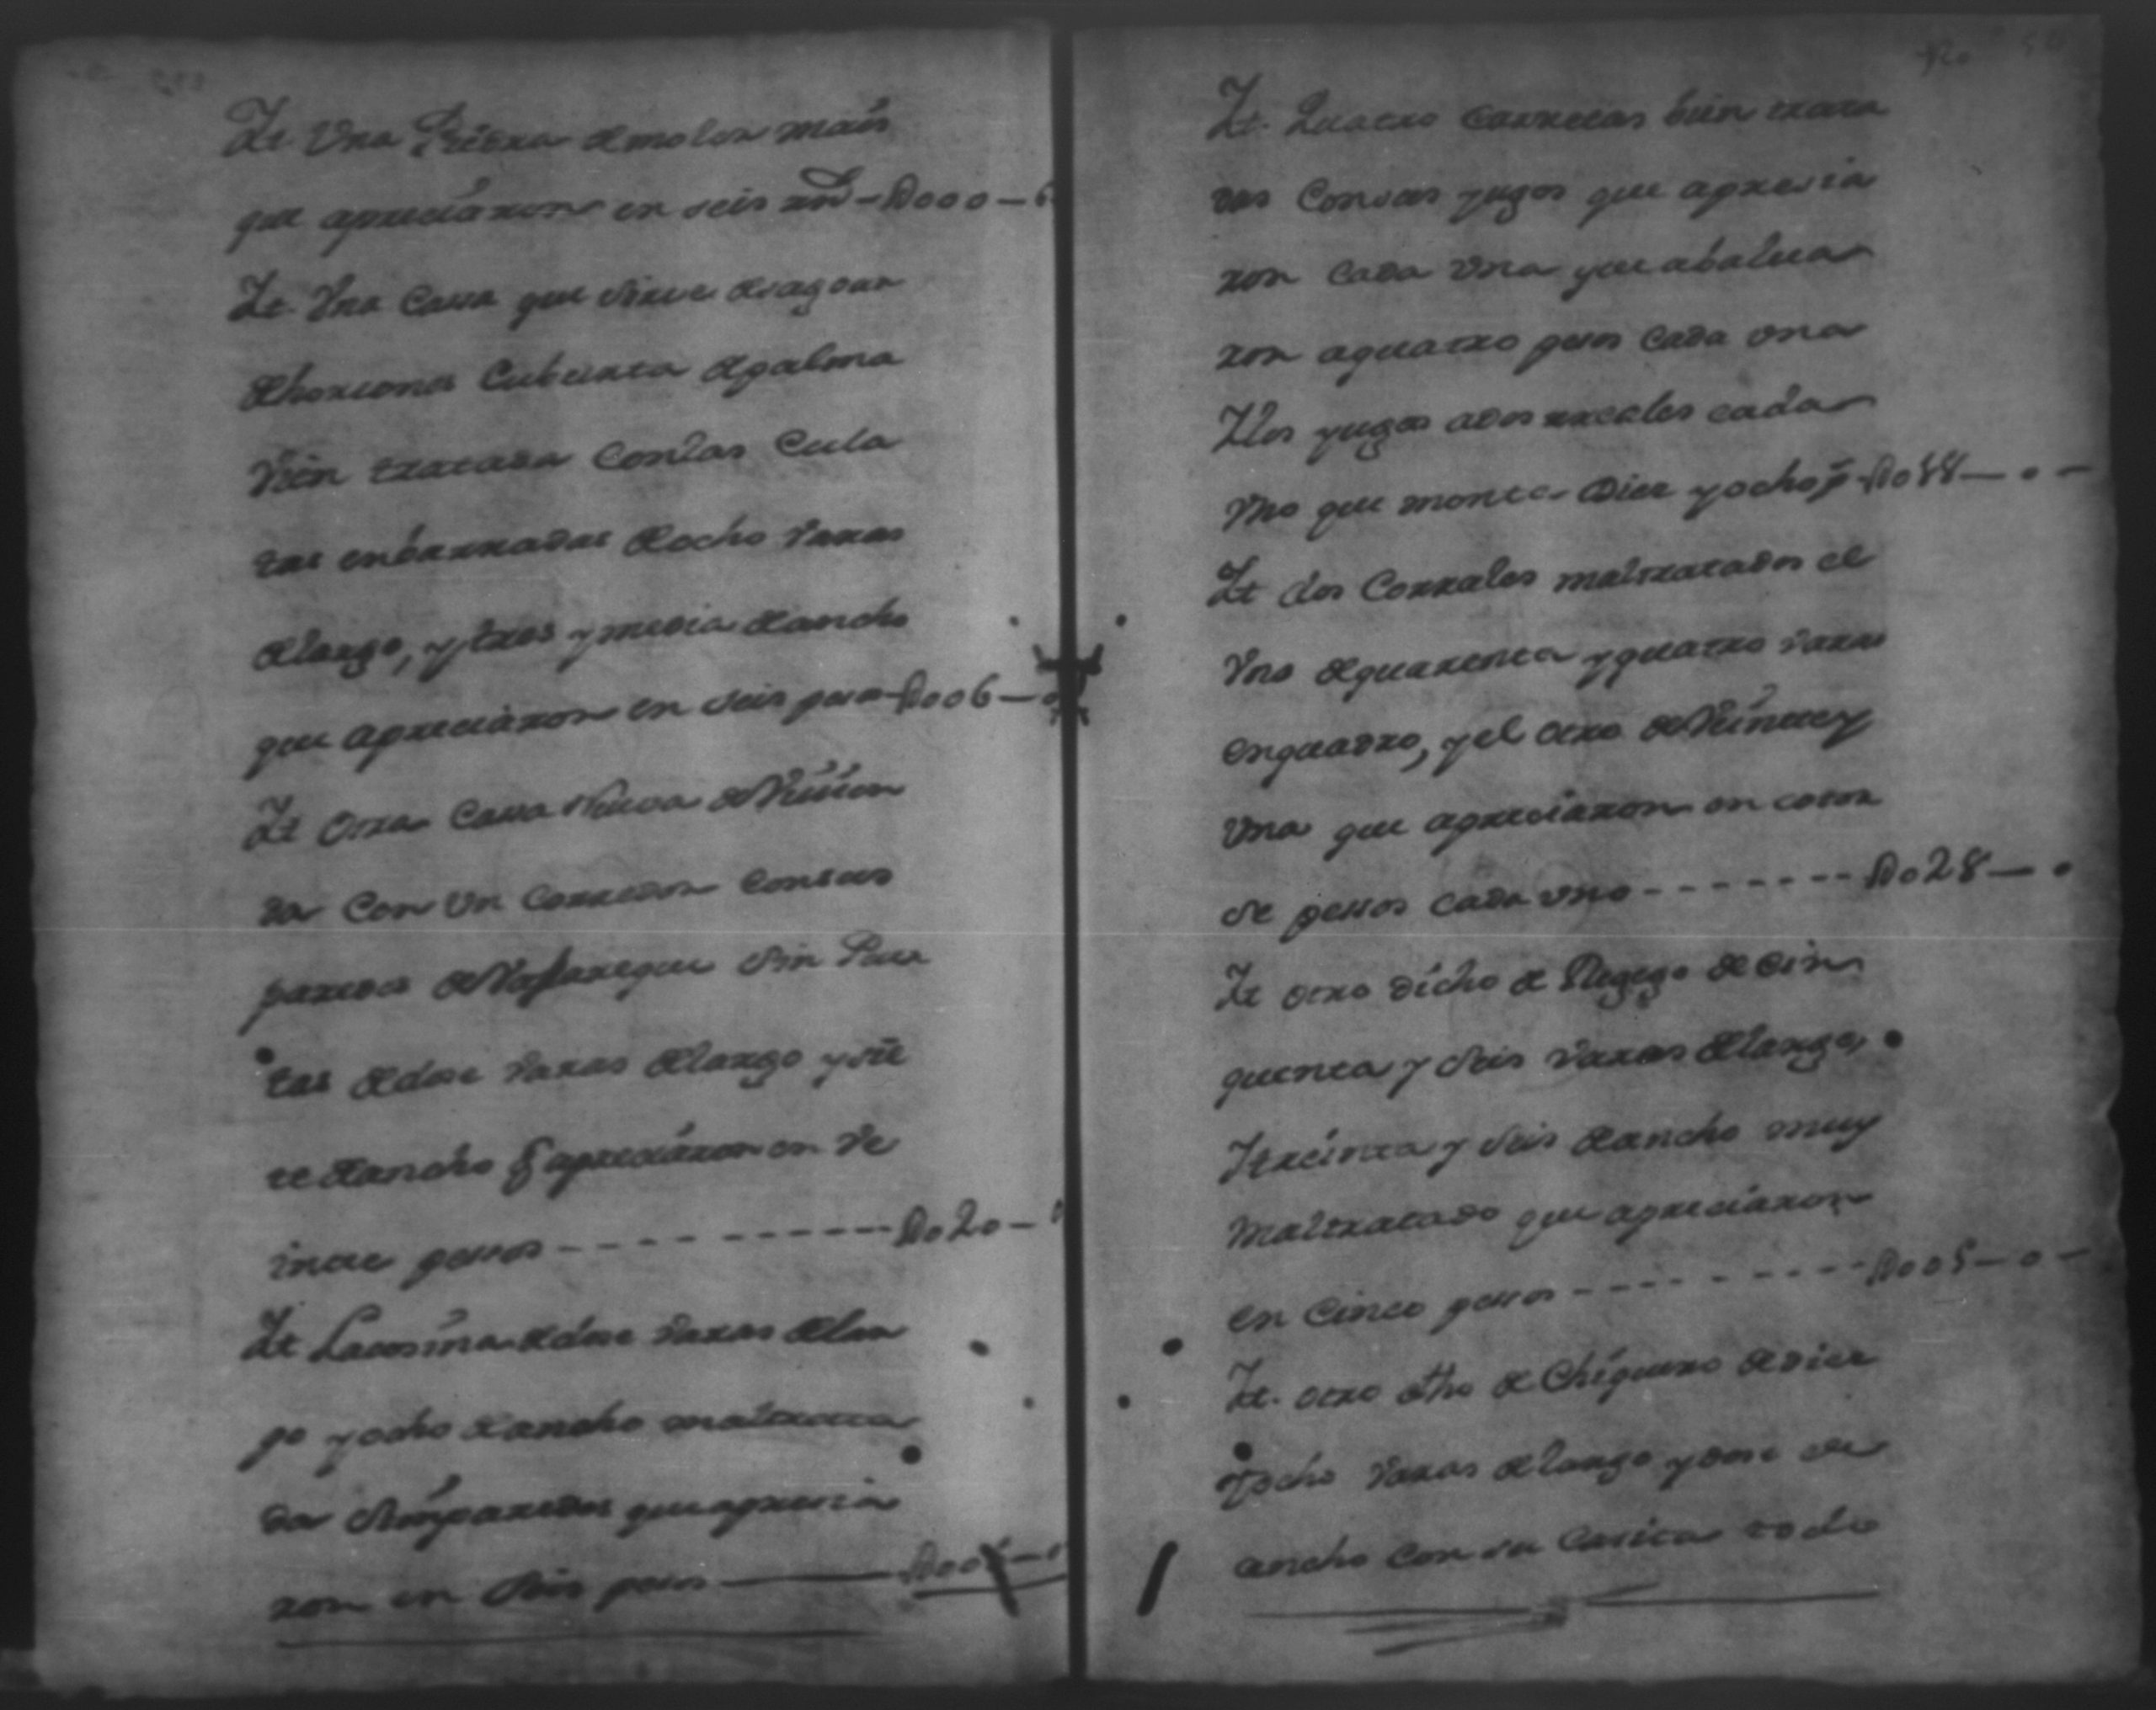 It Una Piedra de moler mais
que apreciaron en seis rrs – D000–6
It. Una Casa que sirve de
de horcones Cubierta de palma
Vien tratada Con las Cula
tas enbarradas de ocho Varas
de largo, y tres y media de ancho
que apreciaron en seis pesos – D006–0
It Otra Casa Nueva de Vivien
da Con Un Corredor Con sus
paredes de Vajareque Sin Puer
tas de dose Varas de largo y sie
te de ancho q apreciaron en Ve
inte pessos – – – – – – – – – – D020–
It La cosina de dose Varas de lar
go y ocho de ancho maltrata
da Sin paredes que aprecia
ron en Seis pesos ——— D006–0
It. Quatro Carretas bien trata
das Con sus yugos que aprecia
ron Cada Una y que abalua
ron a quatro pesos Cada una
I los yugos a dos rreales cada
Uno que monta Dies y ocho ps D018–0–
It dos Corrales maltratados el
Uno de quarenta y quatro Varas
en quadro, y el otro de Veinte y
Una que apreciaron en cator
se pessos cada uno – – – – – – – D028–0
It otro dicho de de sin
quenta y Seis Varas de largo,
I treinta y Seis de ancho muy
Maltratado que apreciaron
en Cinco pessos – – – – – – – – D005–0–
It. otro dho de Chiquero de dies
y ocho Varas de largo y dose de
ancho con su Casita todo